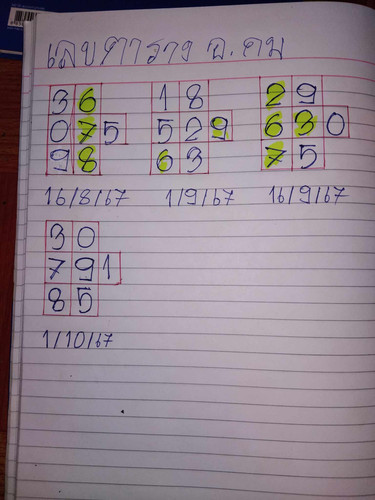 เลขตาราง อ.คม
36 18 29
075 529 630
98 63 75
16/8/67 1/9/67 16/9/67
30
791
85
1/10/67